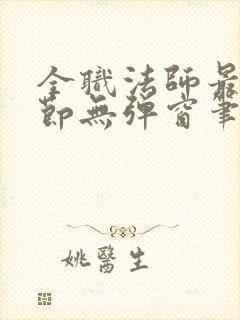 全職法師最
節無彈窗筆
姚醫生